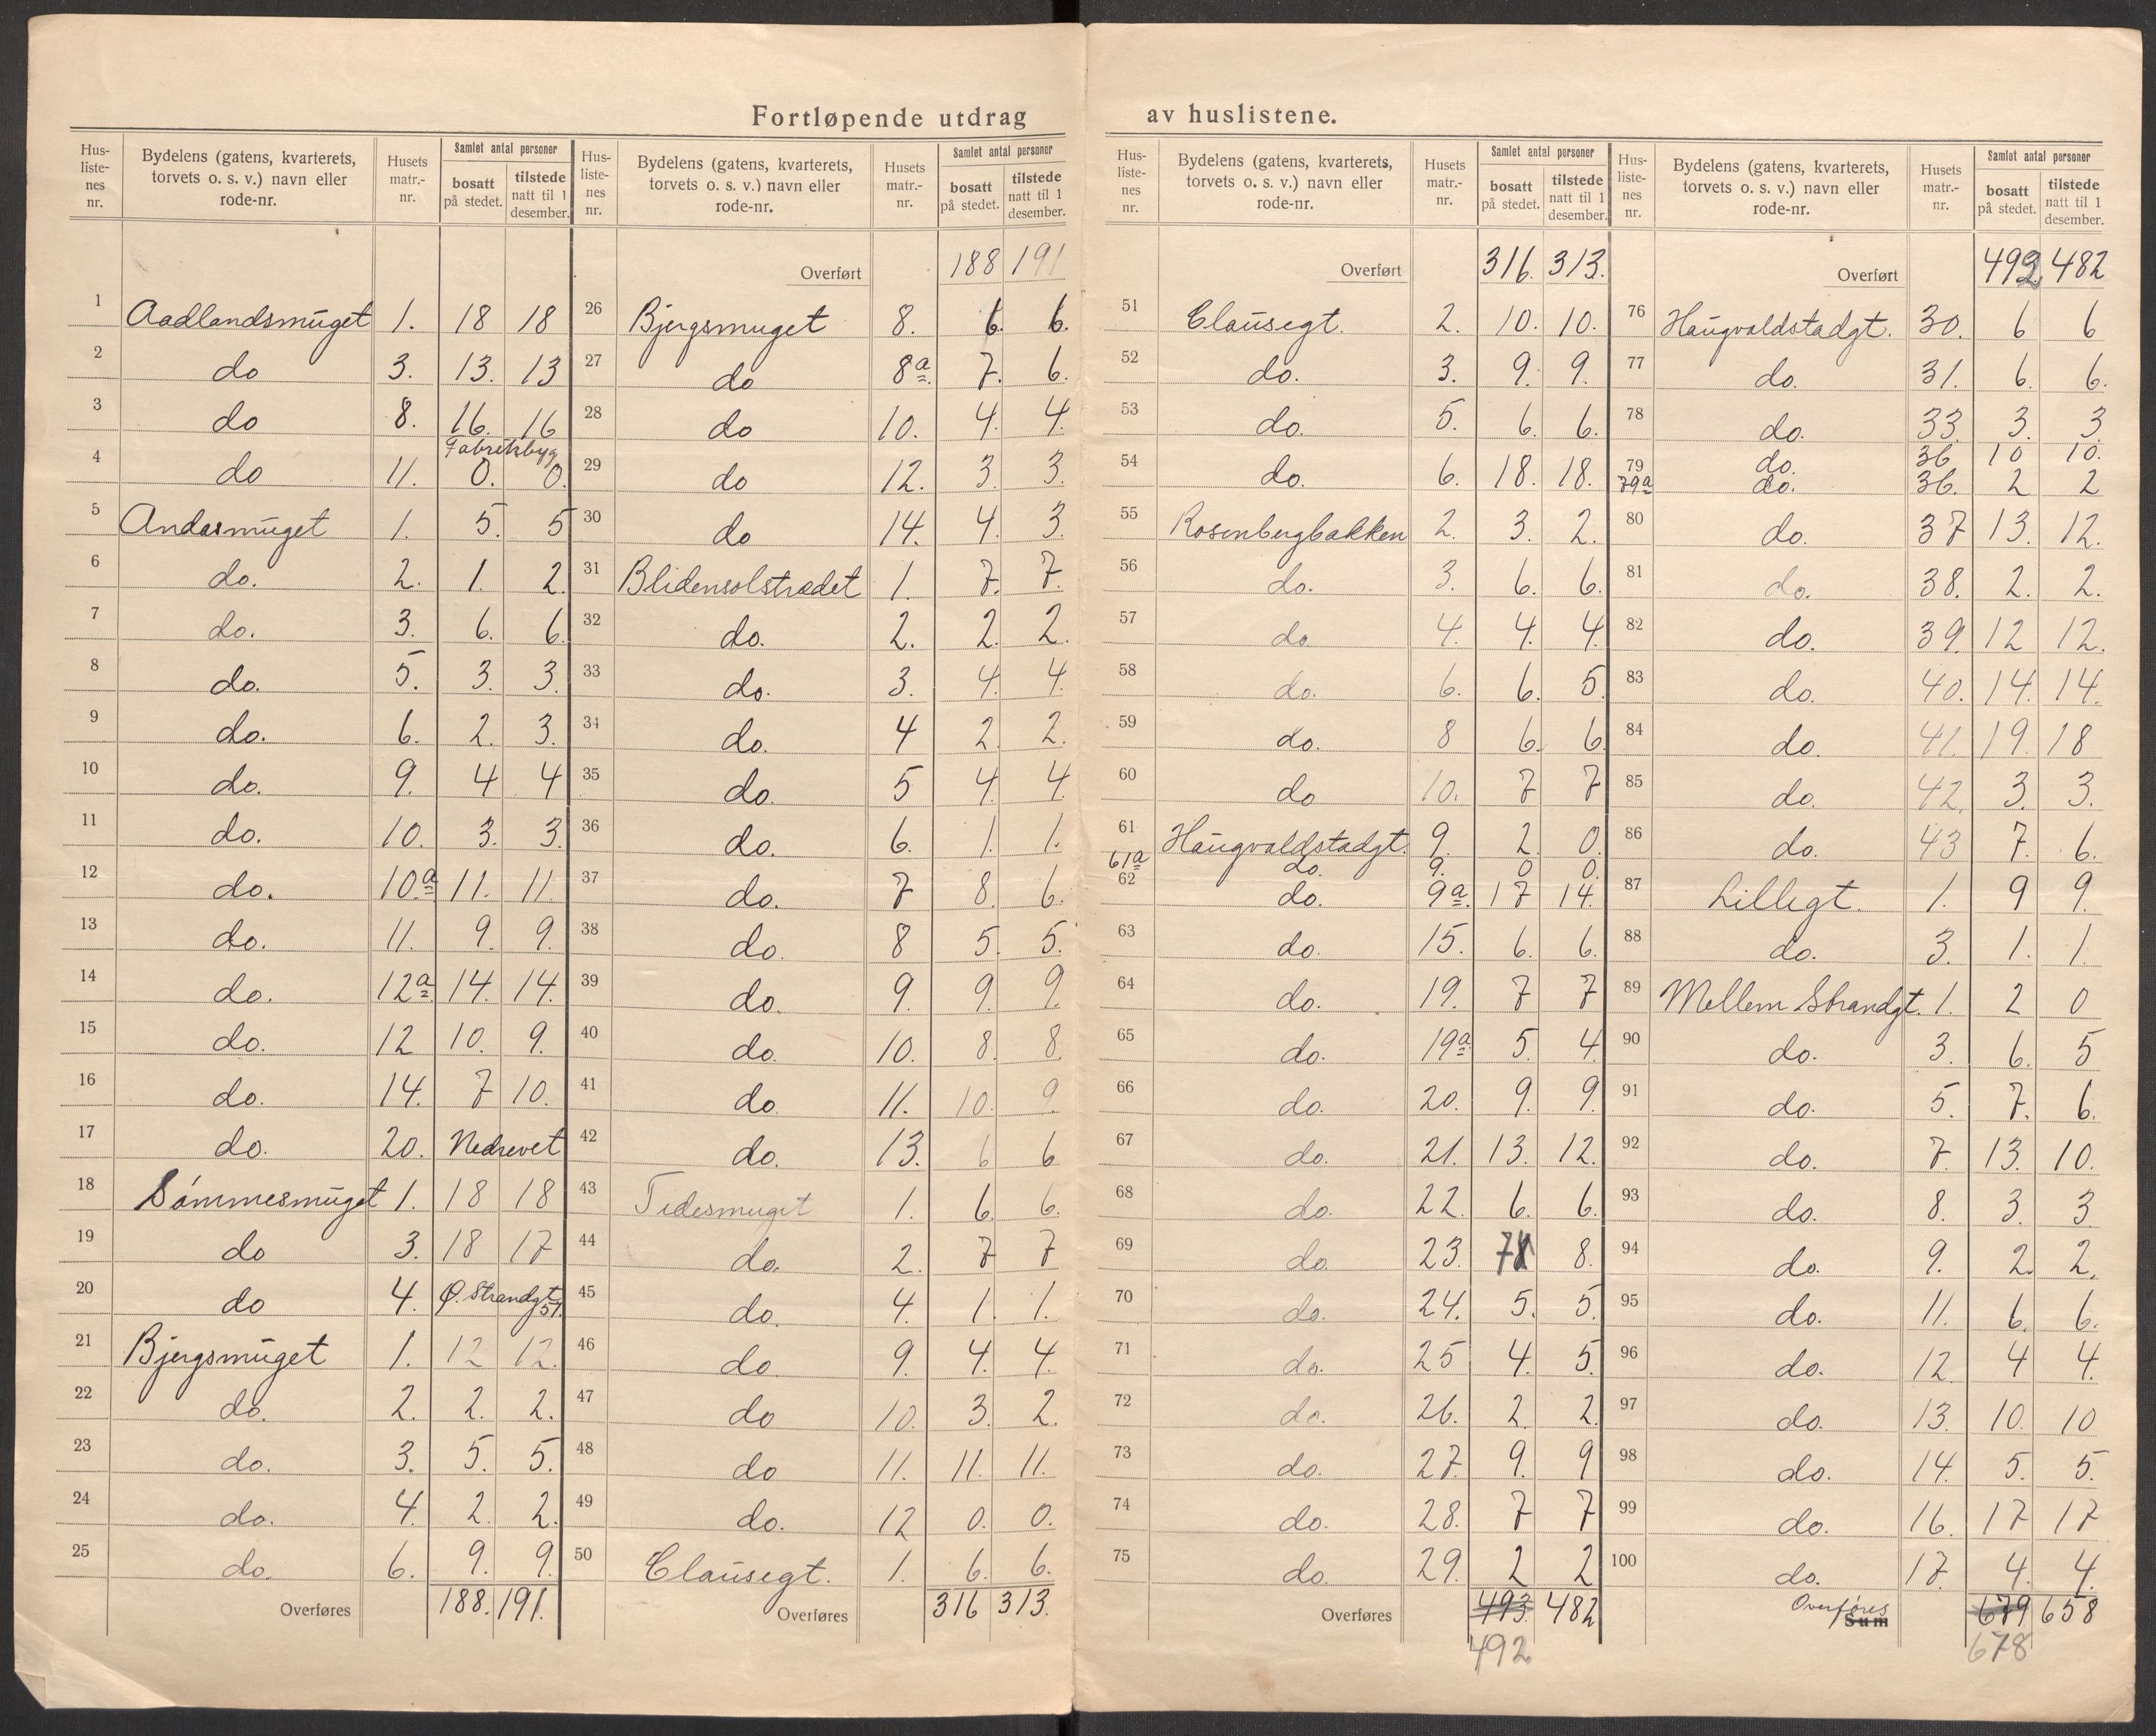 Fortløpende utdrag av huslistene.
Hus-listenes nr. | Bydelens (gatens, kvarterets, torvets o. s. v.) navn eller rode-nr. | Husets matr.-nr. | Samlet antal personer bosatt på stedet. | tilstede natt til 1 desember.
1 Aadlandsmuget 1. 18 18
2 do 3. 13. 13
3 do 8. 16. 16
Fabrikbyg
4 do 11. 0. 0.
5 Andasmuget 1. 5. 5
6 do. 2. 1. 2.
7 do. 3. 6. 6.
8 do. 5. 3. 3.
9 do. 6. 2. 3.
10 do. 9. 4 4
11 do. 10. 3. 3.
12 do. 10a 11. 11.
13 do. 11. 9. 9.
14 do. 12a 14. 14.
15 do. 12 10. 9.
16 do. 14. 7 10.
17 do. 20. Nedrevet
18 Sømmesmuget 1. 18 18
19 do 3. 18 17
20 do 4. Ø. Strandgt. 51.
21 Bjergsmuget 1. 12 12.
22 do. 2. 2. 2.
23 do. 3. 5. 5.
24 do. 4. 2. 2.
25 do. 6. 9. 9.
Overføres 188. 191.
Hus-listenes nr. | Bydelens (gatens, kvarterets, torvets o. s. v.) navn eller rode-nr. | Husets matr.-nr. | Samlet antal personer bosatt på stedet. | tilstede natt til 1 desember.
Overført 188 191
26 Bjergsmuget 8. 6. 6.
27 do 8a. 7. 6.
28 do 10. 4. 4.
29 do 12. 3. 3.
30 do 14. 4. 3.
31 Blidensolstrædet 1. 7. 7.
32 do. 2. 2. 2.
33 do. 3. 4. 4.
34 do. 4 2. 2.
35 do. 5 4. 4.
36 do. 6. 1. 1.
37 do. 7 8. 6.
38 do. 8 5. 5.
39 do. 9. 9. 9.
40 do. 10. 8. 8.
41 do. 11. 10. 9
42 do. 13. 6 6
43 Tidesmuget 1. 6. 6.
44 do. 2. 7 7
45 do. 4. 1. 1.
46 do. 9. 4. 4.
47 do 10. 3. 2.
48 do 11. 11. 11.
49 do. 12 0. 0.
50 Clausegt. 1. 6. 6.
Overføres 316 313.
Hus-listenes nr. | Bydelens (gatens, kvarterets, torvets o. s. v.) navn eller rode-nr. | Husets matr.-nr. | Samlet antal personer bosatt på stedet. | tilstede natt til 1 desember.
Overført 316. 313.
51 Clausegt. 2. 10. 10.
52 do. 3. 9. 9.
53 do. 5. 6. 6.
54 do. 6. 18. 18.
55 Rosenbergbakken 2. 3. 2.
56 do. 3. 6. 6.
57 do 4. 4. 4.
58 do. 6. 6. 5.
59 do. 8 6. 6.
60 do 10. 7 7
61 Haugvaldstadgt. 9. 2. 0.
61a do. 9. 0 0.
62 do. 9a. 17 14.
63 do. 15. 6. 6.
64 do. 19. 7 7
65 do. 19a 5. 4.
66 do. 20. 9. 9.
67 do. 21. 13. 12.
68 do. 22. 6. 6.
69 do. 23. 7 8.
70 do. 24. 5. 5.
71 do. 25 4. 5.
72 do. 26. 2. 2.
73 do. 27. 9. 9
74 do. 28. 7 7
75 do. 29. 2 2
Overføres 493. 482
492
Hus-listenes nr. | Bydelens (gatens, kvarterets, torvets o. s. v.) navn eller rode-nr. | Husets matr.-nr. | Samlet antal personer bosatt på stedet. | tilstede natt til 1 desember.
Overført 492 482
76 Haugvaldstadgt. 30. 6 6
77 do. 31. 6. 6.
78 do. 33. 3. 3.
79 do. 36 10 10.
79a do. 36. 2 2
80 do. 37 13. 12.
81 do. 38. 2. 2.
82 do. 39. 12 12.
83 do. 40. 14. 14.
84 do. 41. 19. 18
85 do. 42. 3. 3.
86 do. 43 7. 6.
87 Lillegt. 1. 9 9.
88 do. 3. 1. 1.
89 Mellem Strandgt. 1. 2 0
90 do. 3. 6. 5
91 do. 5. 7. 6.
92 do. 7. 13. 10.
93 do. 8. 3. 3
94 do. 9. 2. 2.
95 do. 11. 6. 6.
96 do. 12. 4 4.
97 do. 13. 10. 10
98 do. 14. 5. 5.
99 do. 16. 17 17
100 do. 17. 4. 4.
Overføres Sum 679 658
678